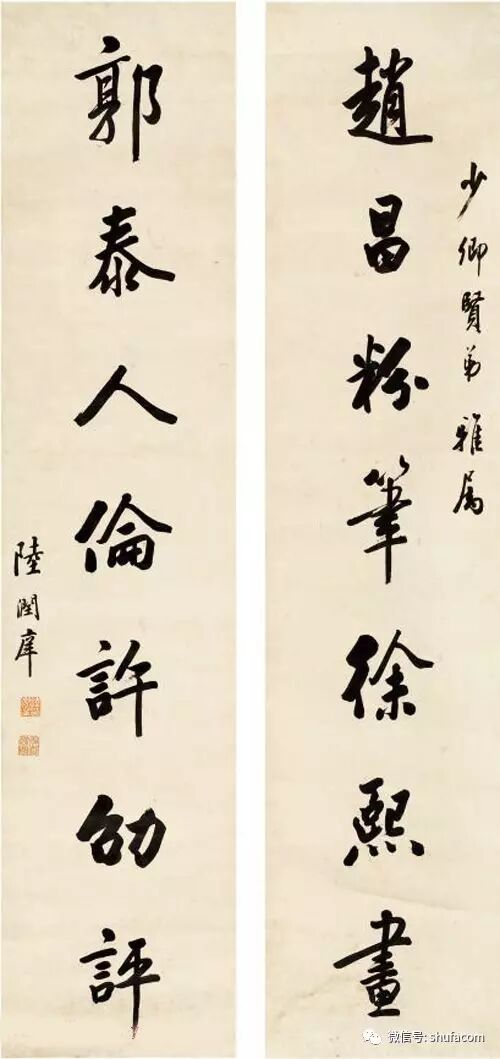 少卿賢弟雅属
趙昌粉筆徐熙畫
郭泰人倫許劭評
陸潤庠
微信号: shufacom